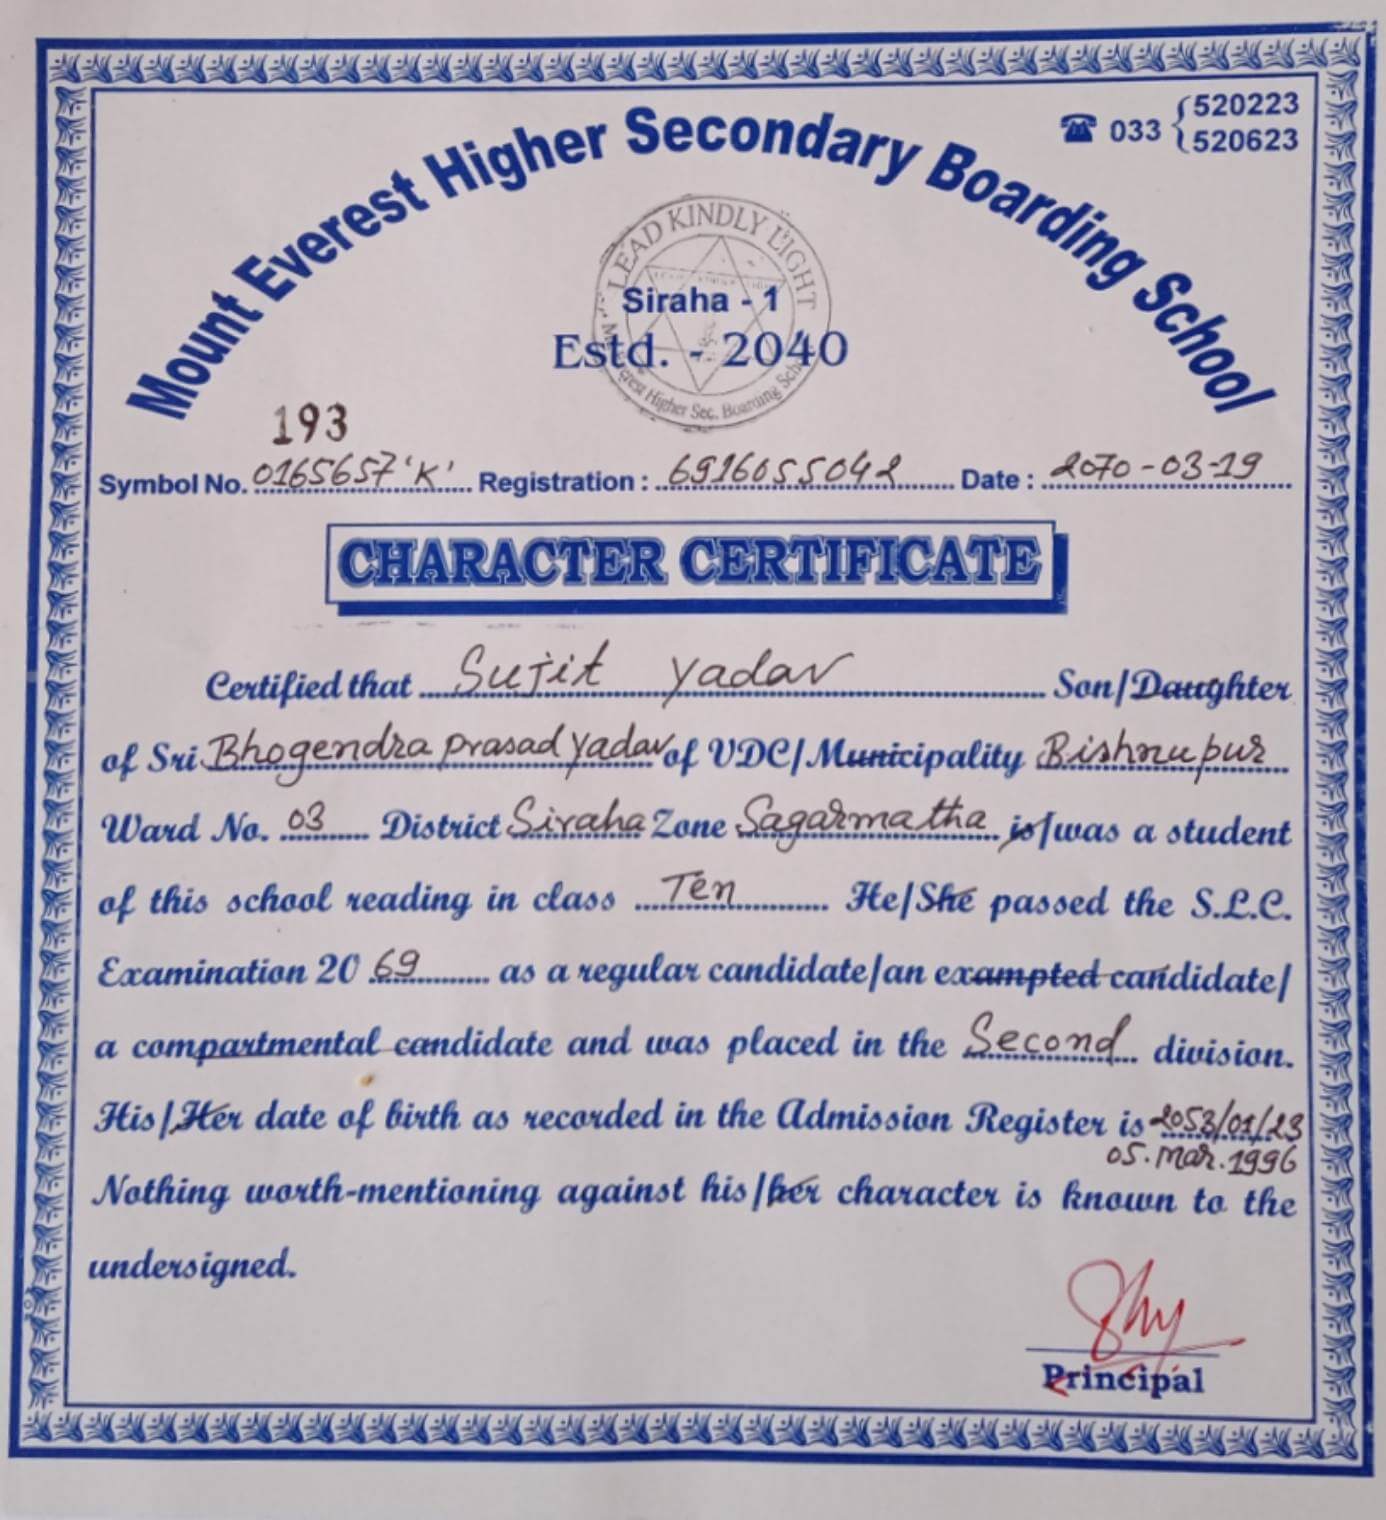 033 520223
520623
Mount Everest Higher Secondary Boarding School
LEAD KINDLY LIGHT
Siraha - 1
Estd. - 2040
Higher Sec. Boarding
193
Symbol No. 0165657 'K' Registration : 6916055042 Date : 2070-03-19
CHARACTER CERTIFICATE
Certified that Sujit Yadav Son/Daughter
of Sri Bhogendra Prasad Yadav of VDC/Municipality Bishnupur
Ward No. 03 District Siraha Zone Sagarmatha is/was a student
of this school reading in class Ten He/She passed the S.L.C.
Examination 20 69 as a regular candidate/an exampted candidate/
a compartmental candidate and was placed in the Second division.
His/Her date of birth as recorded in the Admission Register is 2053/01/23
05. Mar. 1996
Nothing worth-mentioning against his/her character is known to the
undersigned.
Principal